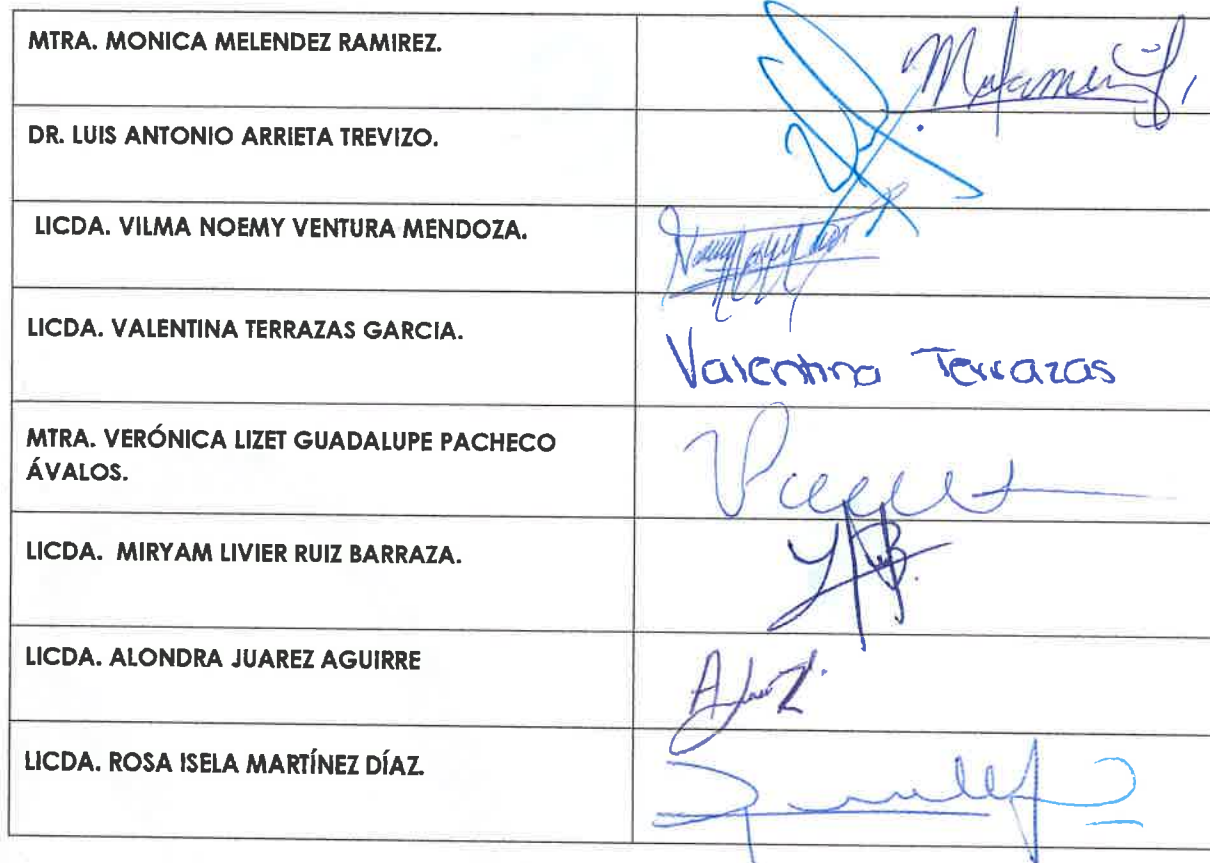 MTRA. MONICA MELENDEZ RAMIREZ.
DR. LUIS ANTONIO ARRIETA TREVIZO.
LICDA. VILMA NOEMY VENTURA MENDOZA.
LICDA. VALENTINA TERRAZAS GARCIA.
Valentina Terrazas
MTRA. VERÓNICA LIZET GUADALUPE PACHECO
ÁVALOS.
LICDA. MIRYAM LIVIER RUIZ BARRAZA.
LICDA. ALONDRA JUAREZ AGUIRRE
LICDA. ROSA ISELA MARTÍNEZ DÍAZ.